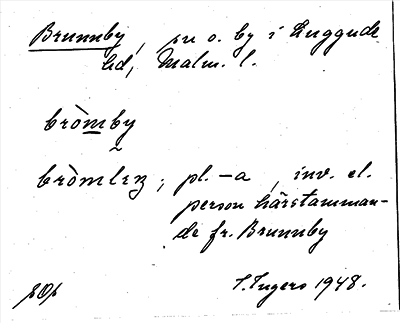 Brunnby, sn o. by i Luggude
hd, Malm. l.
bròmby
bròmlɪʒ; pl. -a, inv. el.
person härstamman-
de fr. Brunnby
S. Ingers 1948.